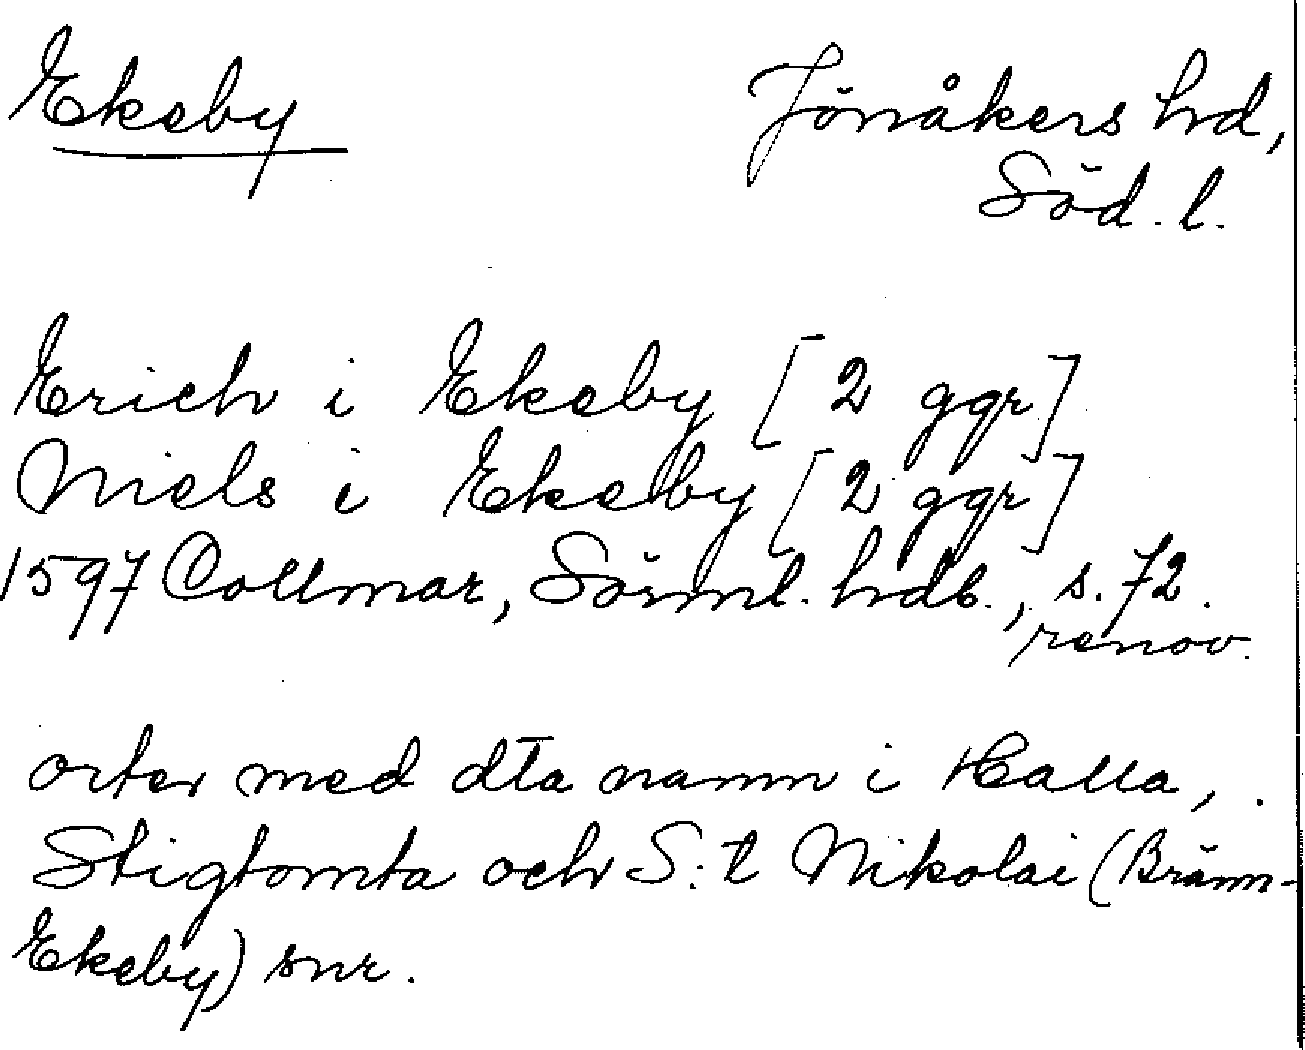 Ekeby
Jönåkers hd,
Söd. l.
Erich i Ekeby [2 ggr]
Niels i Ekeby [2 ggr]
1597 Collmar, Sörml. hdb., s. 72.
renov.
orter med dta namn i Halla,
Stigtomta och S:t Nikolai (Bränn-
Ekeby) snr.